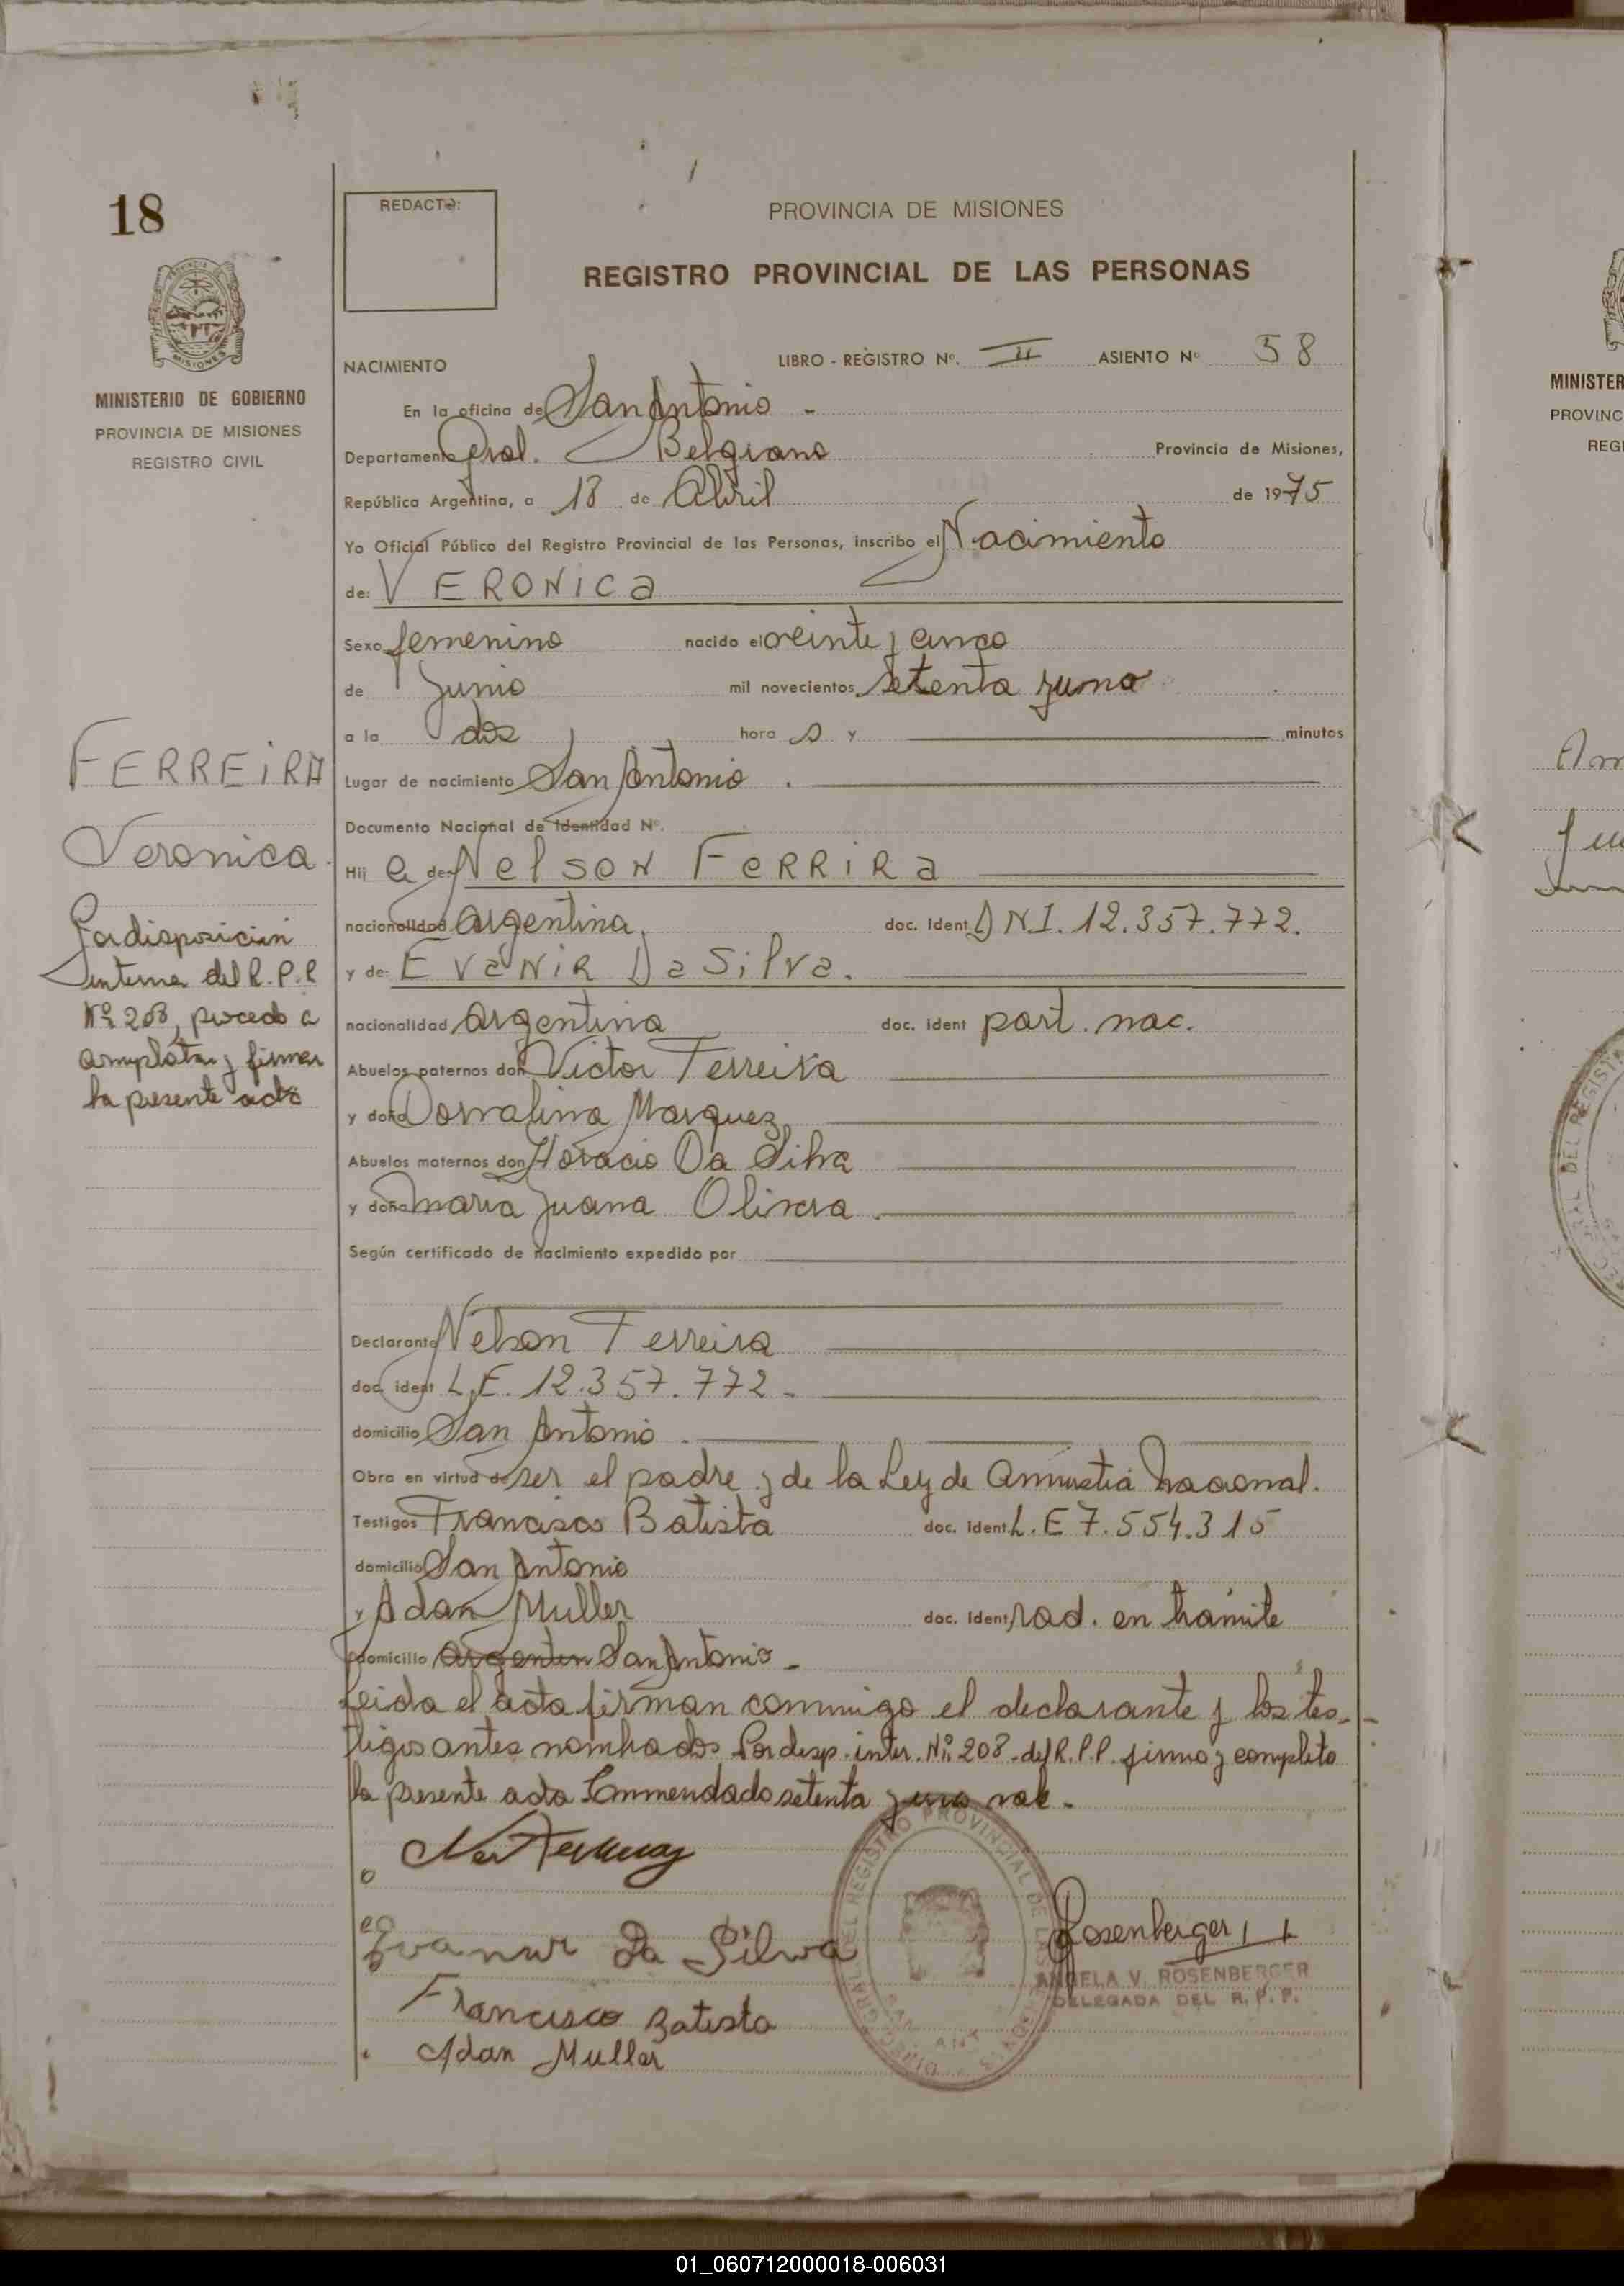 18
REDACTO:
PROVINCIA DE MISIONES
REGISTRO PROVINCIAL DE LAS PERSONAS
MINISTERIO DE GOBIERNO
PROVINCIA DE MISIONES
REGISTRO CIVIL
NACIMIENTO
LIBRO - REGISTRO Nº. II ASIENTO Nº 58
En la oficina de San Antonio -
Departamento Gral. Belgrano Provincia de Misiones,
República Argentina, a 18 de Abril de 1975
Yo Oficial Público del Registro Provincial de las Personas, inscribo el Nacimiento
de: VERONICa
Sexo femenino nacido el veinte y cinco
de Junio mil novecientos setenta y uno
a la dos hora s y minutos
Lugar de nacimiento San Antonio.
Documento Nacional de Identidad Nº.
Hij a de Nelson FeRRiRa
nacionalidad argentina, doc. Ident DNI. 12.357.772.
y de: EVaNiR Da Silva.
nacionalidad argentina doc. ident part. nac.
Abuelos paternos don Victor Ferreira
y doña Dornalina Marquez
Abuelos maternos don Horacio Da Silva
y doña maria Juana Olivera.
Según certificado de nacimiento expedido por
Declarante Nelson Ferreira
doc. ident L.E. 12.357.772-
domicilio San Antonio.
Obra en virtud de ser el padre y de la Ley de Amnistia Nacional.
Testigos Francisco Batista doc. Ident L.E 7.554.315
domicilio San Antonio
y Adan Muller doc. Ident rad. en tramite
domicilio argentin San Antonio-
Leida el acta firman conmigo el declarante y los tes-
tigos antes nombrados Por desp. inter. Nº 208. del R.P.P. firmo y completo
la presente acta Enmendado setenta y uno vale-
FERREiRA
Veronica.
Por disposicion
interna del R.P.P
Nº 208, procedo a
completar y firmar
la presente acta
Evanir Da Silva
Francisco Batista
Adan Muller
Rosenberger
ANGELA V. ROSENBERGER
DELEGADA DEL R. P. P.
MINISTER
PROVINC
REGI
01_060712000018-006031